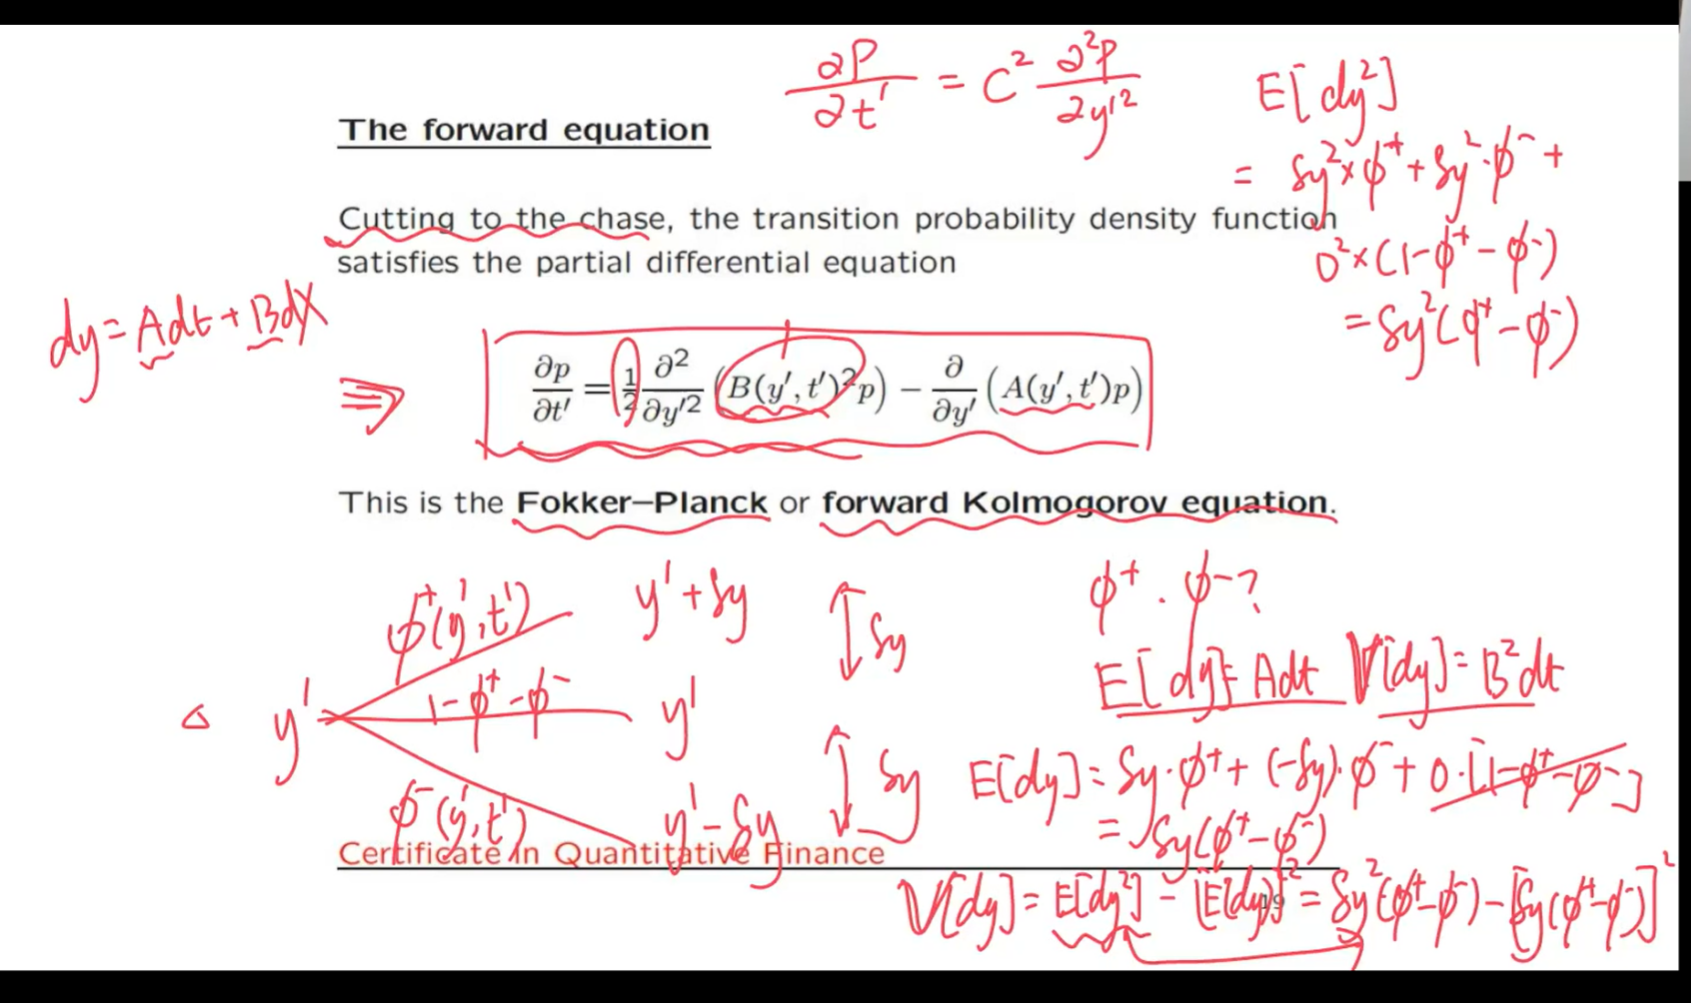 ∂P/∂t' = C² ∂²P/∂y'²
E[dy²]
= δy² × φ⁺ + δy² · φ⁻ +
0² × (1 - φ⁺ - φ⁻)
= δy² (φ⁺ - φ⁻)
The forward equation
Cutting to the chase, the transition probability density function
satisfies the partial differential equation
dy = Adt + BdX
⇒
∂p/∂t' = 1/2 ∂²/∂y'² (B(y', t')² p) − ∂/∂y' (A(y', t')p)
This is the Fokker–Planck or forward Kolmogorov equation.
φ⁺(y', t') y' + δy
δy
y' 1 - φ⁺ - φ⁻ y'
δy
φ⁻(y', t') y' - δy
φ⁺ . φ⁻?
E[dy] = Adt V[dy] = B²dt
E[dy] = δy · φ⁺ + (-δy) · φ⁻ + 0 · [1 - φ⁺ - φ⁻]
= δy(φ⁺ - φ⁻)
V[dy] = E[dy²] - [E[dy]]² = δy² (φ⁺ - φ⁻) - [δy(φ⁺ - φ⁻)]²
Certificate in Quantitative Finance
19